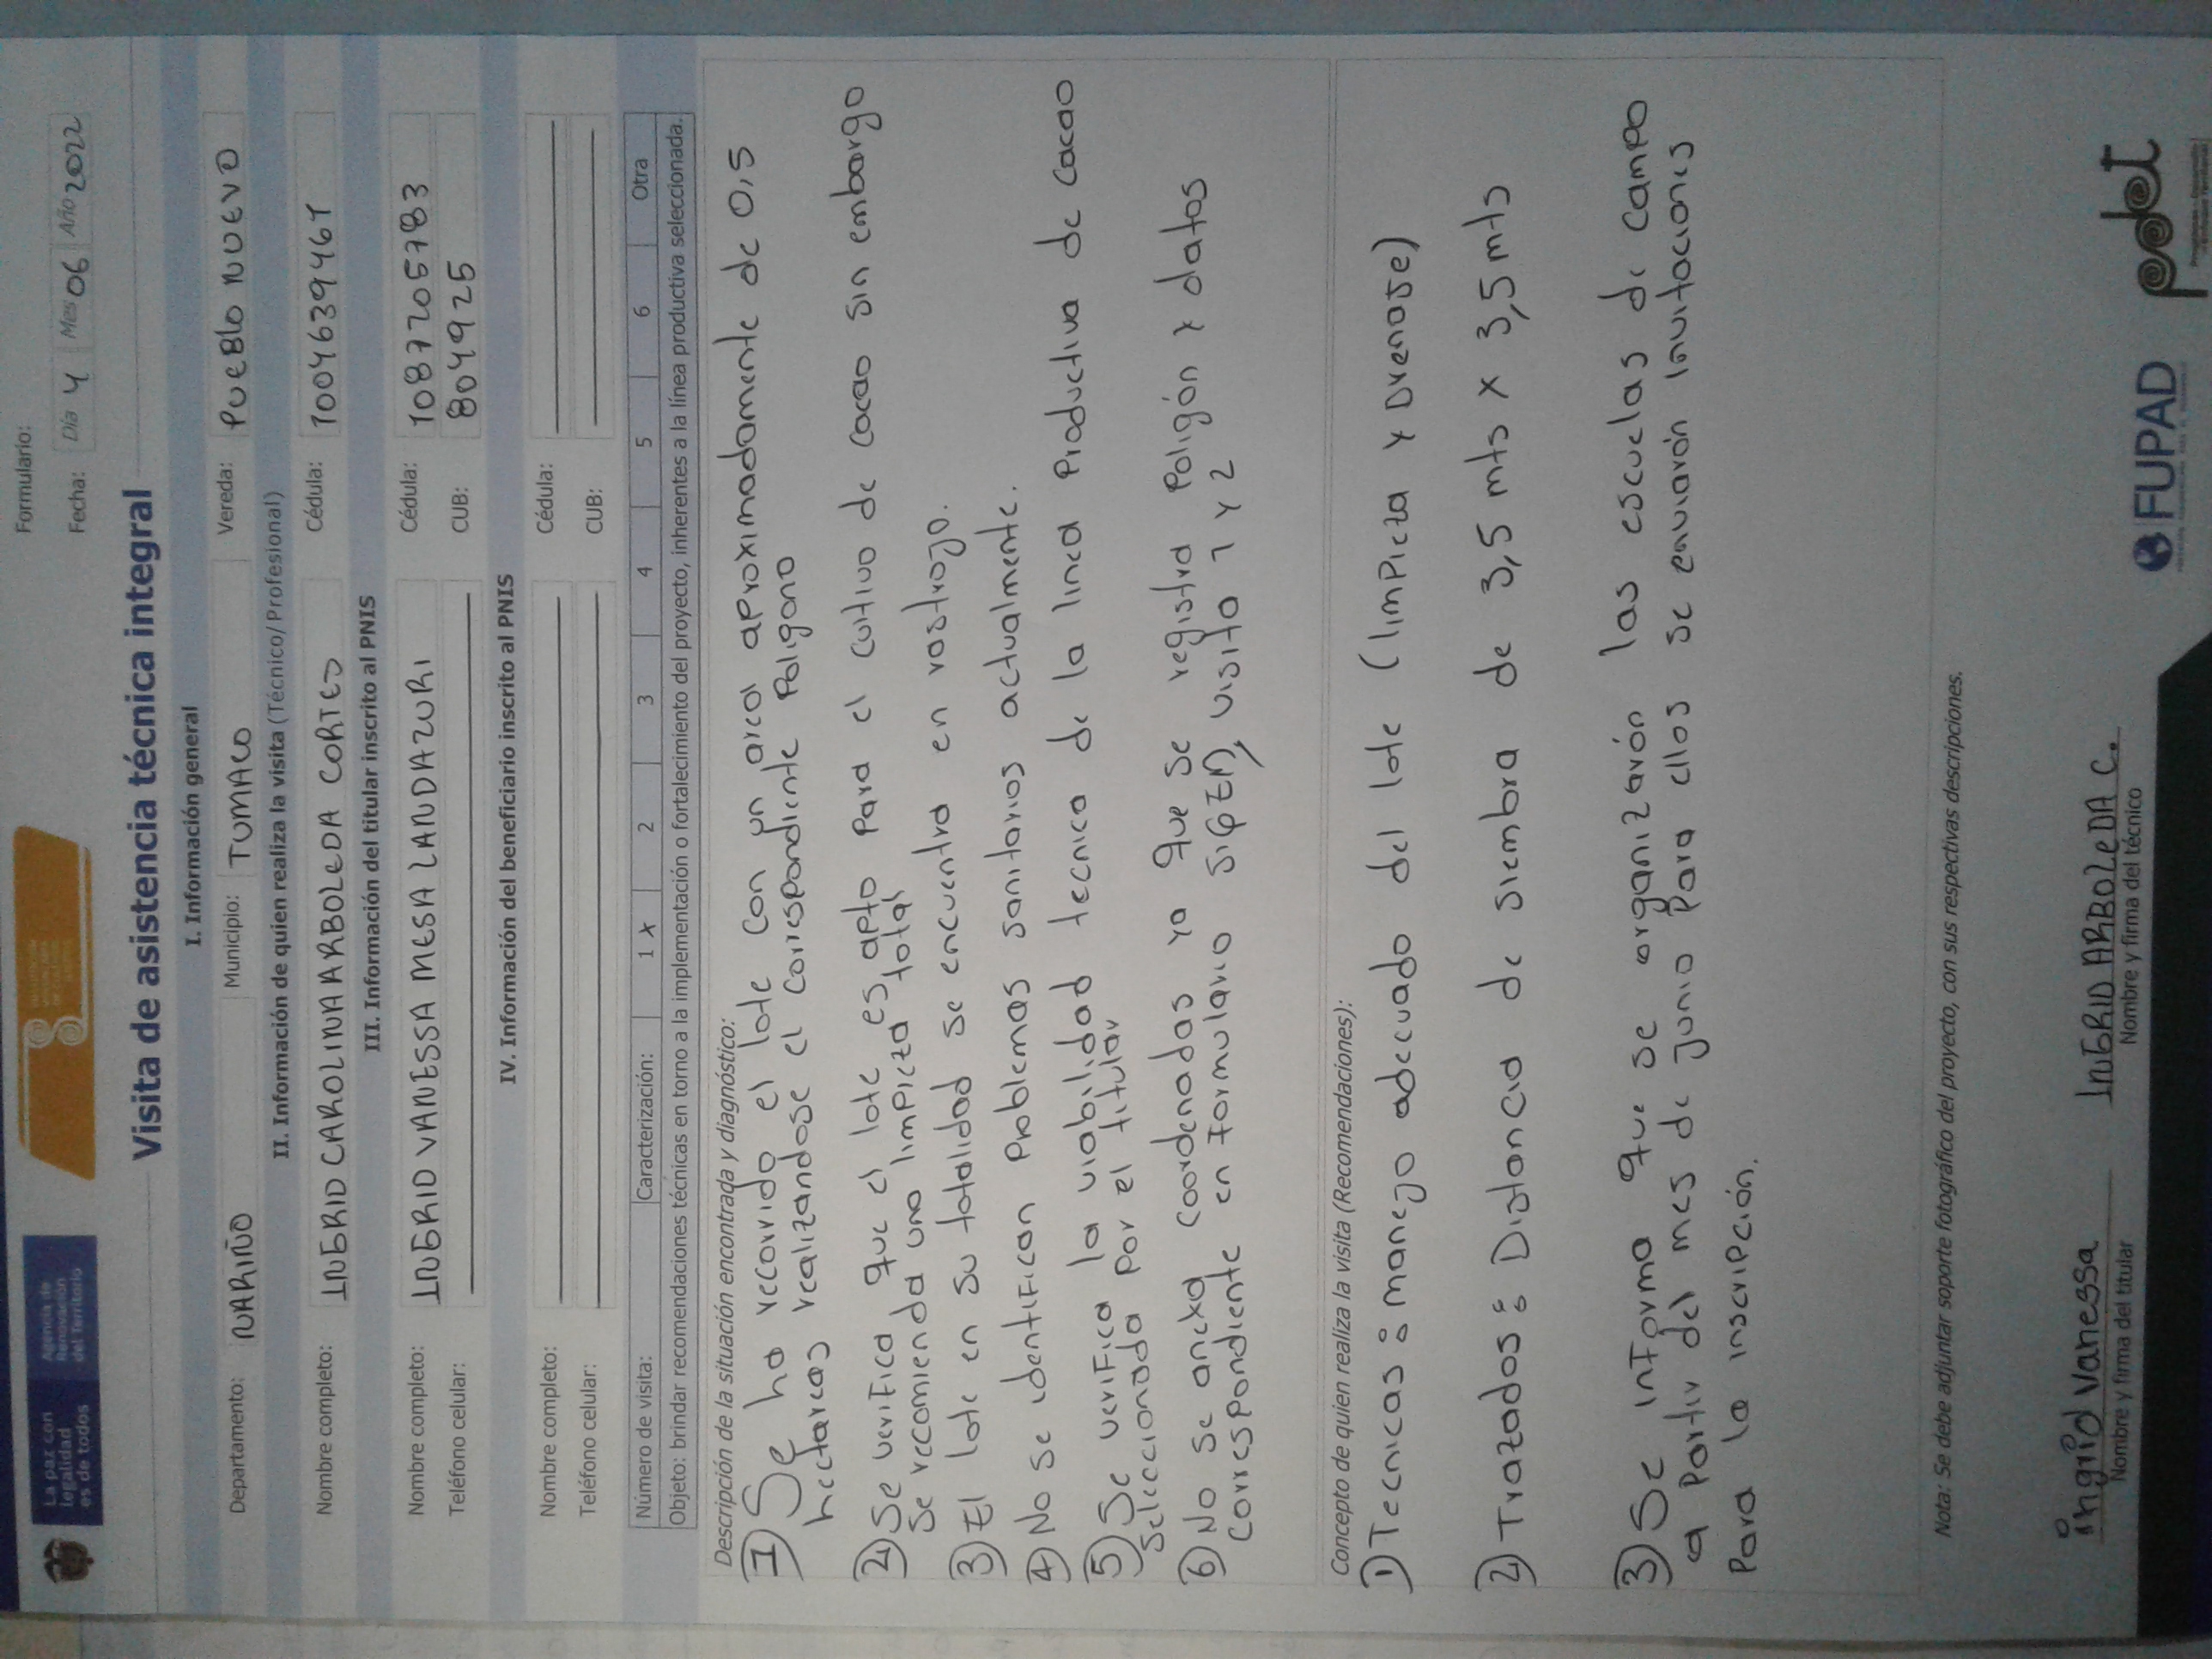 La paz con
legalidad
es de todos
Agencia de
Renovación
del Territorio
Formulario:
Fecha: Día 4 Mes 06 Año 2022
Visita de asistencia técnica integral
I. Información general
Departamento: NARIÑO Municipio: TUMACO Vereda: PUEBLO NUEVO
II. Información de quien realiza la visita (Técnico/ Profesional)
Nombre completo: INGRID CAROLINA ARBOLEDA CORTES Cédula: 1004639461
III. Información del titular inscrito al PNIS
Nombre completo: INGRID VANESSA MESA LANDAZURI Cédula: 1087205783
Teléfono celular: CUB: 804925
IV. Información del beneficiario inscrito al PNIS
Nombre completo: Cédula:
Teléfono celular: CUB:
Número de visita: Caracterización: 1 x 2 3 4 5 6 Otra
Objeto: brindar recomendaciones técnicas en torno a la implementación o fortalecimiento del proyecto, inherentes a la línea productiva seleccionada.
Descripción de la situación encontrada y diagnóstico:
1) Se ha recorrido el lote con un area aproximadamente de 0,5
hectareas realizandose el correspondiente Poligono
2) Se verifica que el lote es apto para el cultivo de cacao sin embargo
se recomienda una limpieza total
3) El lote en su totalidad se encuentra en rastrojo.
4) No se identifican problemas sanitarios actualmente.
5) Se verifica la viabilidad tecnica de la linea Productiva de cacao
Seleccionada por el titular
6) No se anexa coordenadas ya que se registra Poligón y datos
correspondiente en formulario visita 1 y 2
Concepto de quien realiza la visita (Recomendaciones):
1) Tecnicas: manejo adecuado del lote (limpieza y Drenaje)
2) Trazados: Distancia de siembra de 3,5 mts x 3,5 mts
3) Se informa que se organizarón las escuelas de campo
a Partir del mes de junio Para ellos se enviarón invitaciones
Para la inscripción.
Nota: Se debe adjuntar soporte fotográfico del proyecto, con sus respectivas descripciones.
ingrid vanessa
Nombre y firma del titular
INGRID ARBOLEDA C.
Nombre y firma del técnico
FUPAD
pdet